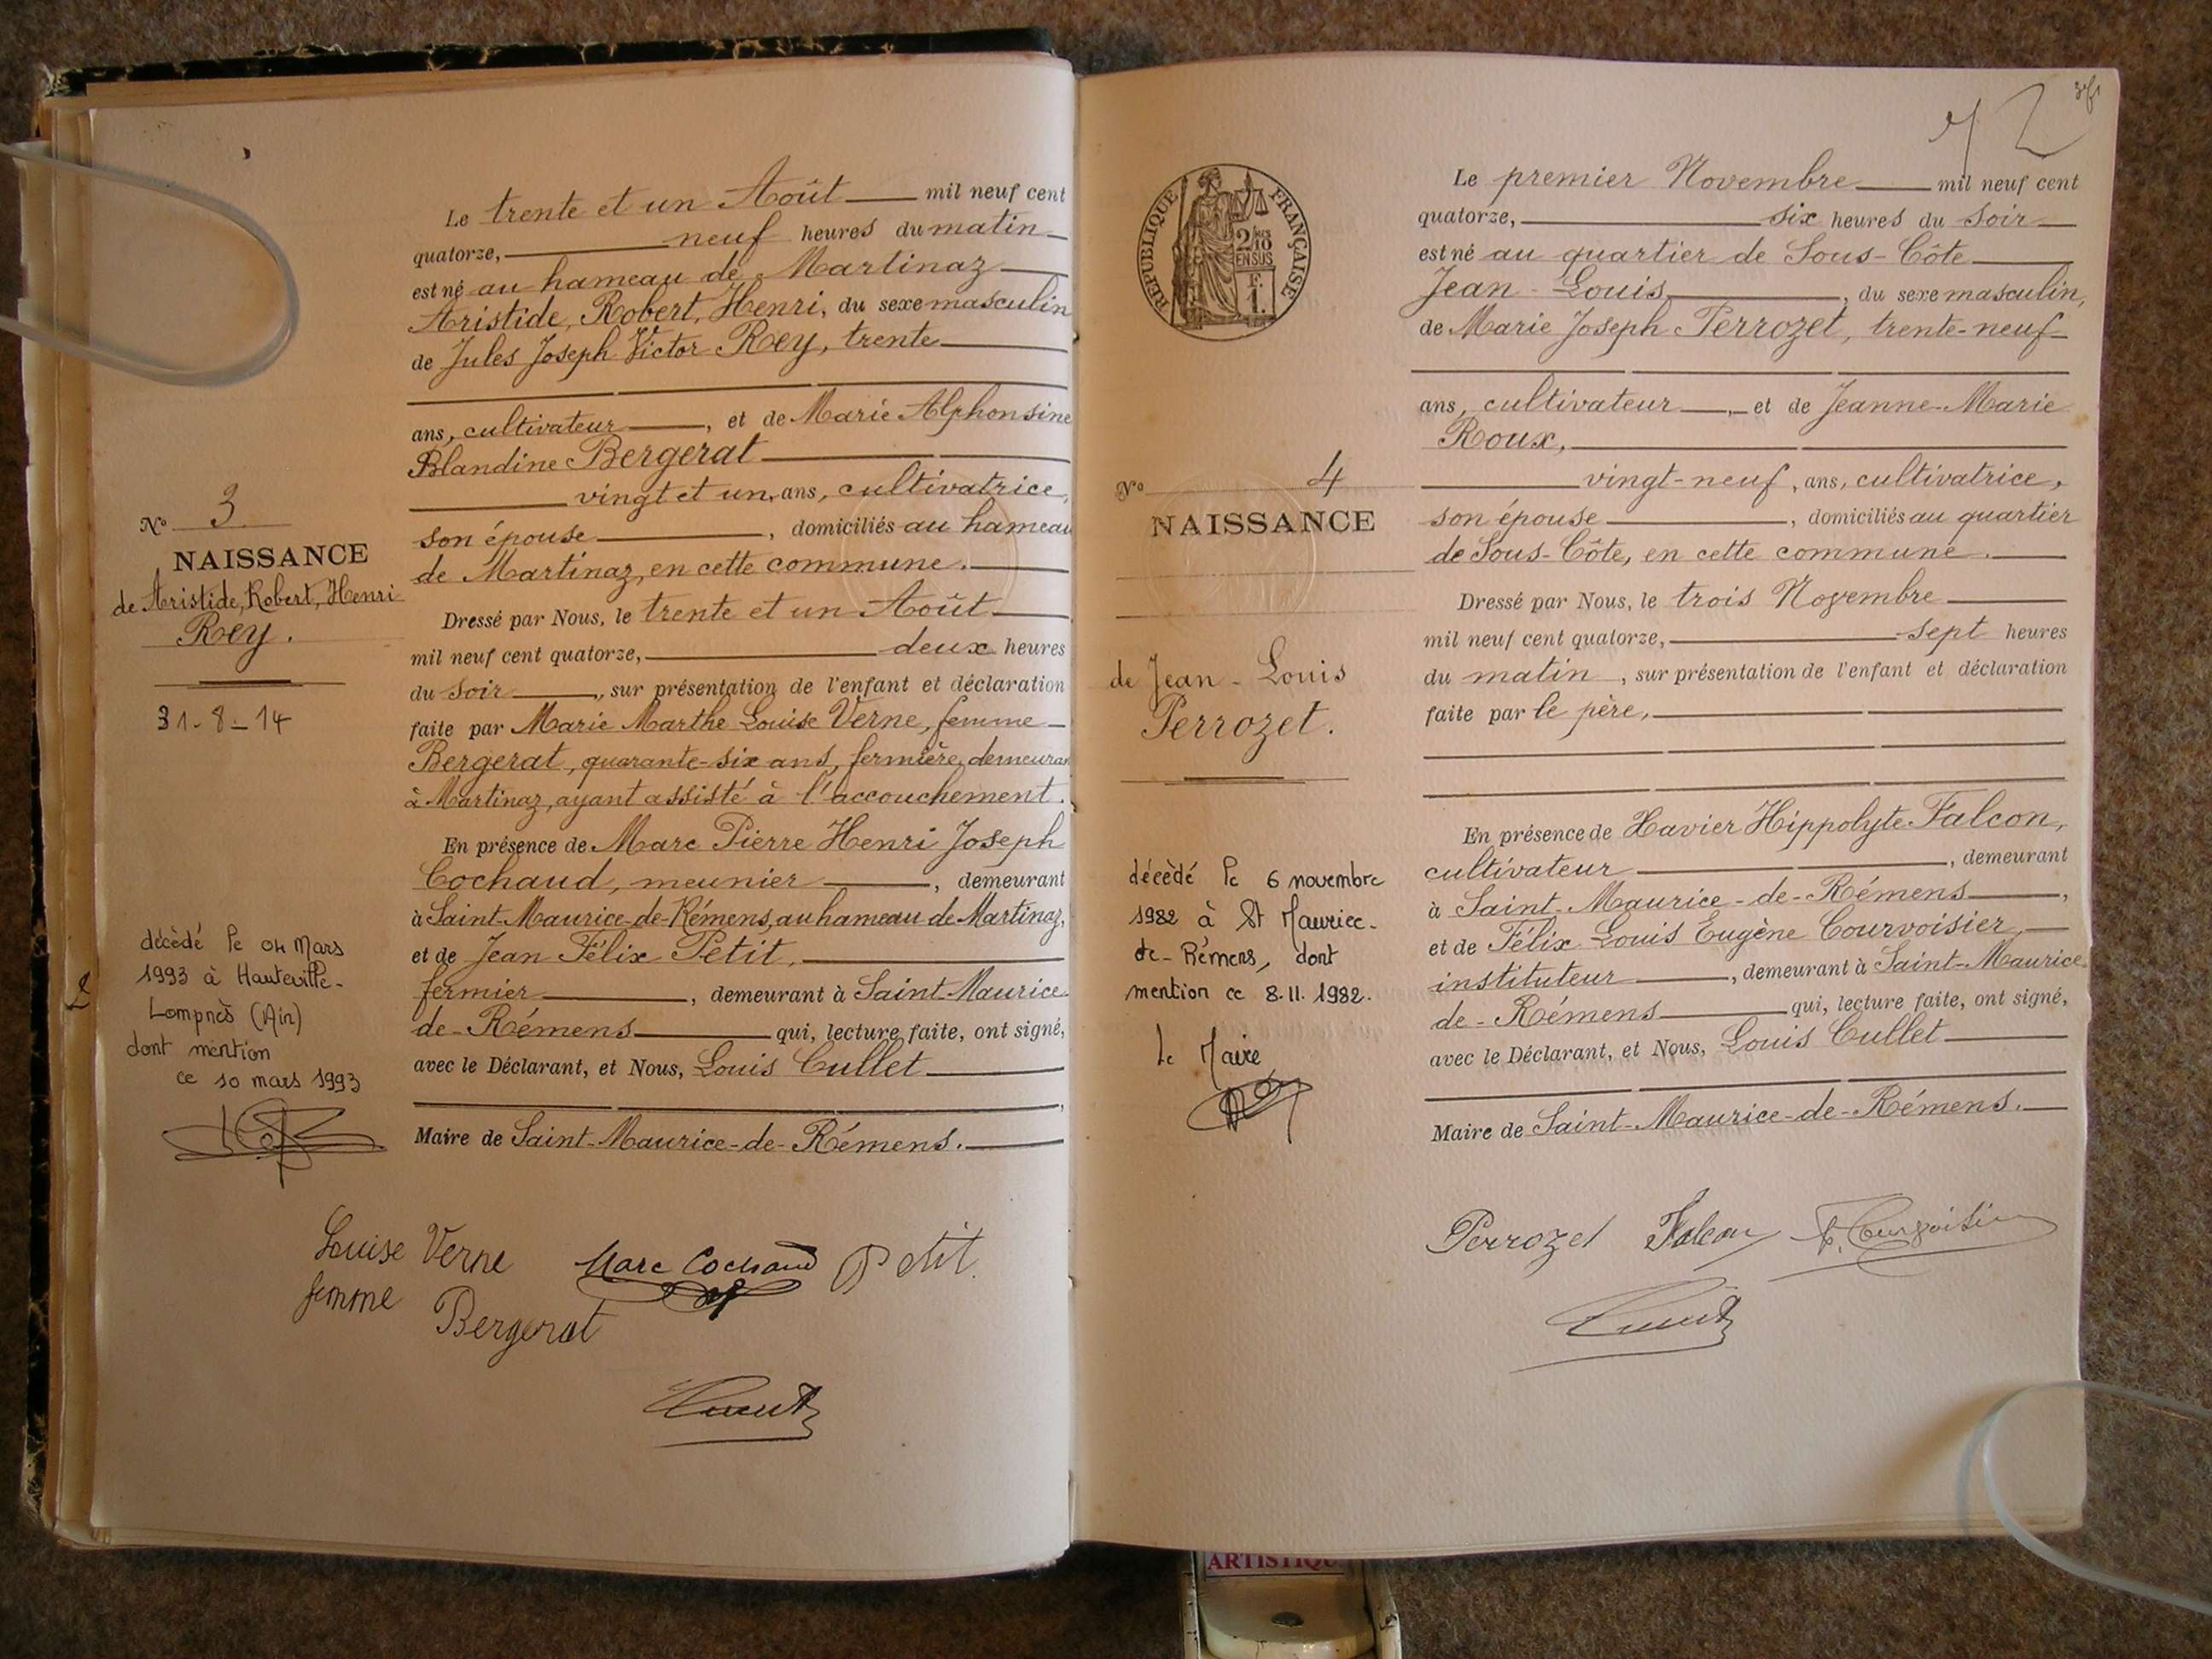 Le trente et un Août mil neuf cent
quatorze, neuf heures du matin
est né au hameau de Martinaz
Aristide, Robert, Henri, du sexe masculin
de Jules Joseph Victor Rey, trente
ans, cultivateur, et de Marie Alphonsine
Blandine Bergerat
vingt et un, ans, cultivatrice,
son épouse, domiciliés au hameau
de Martinaz, en cette commune.
Dressé par Nous, le trente et un Août
mil neuf cent quatorze, deux heures
du soir, sur présentation de l'enfant et déclaration
faite par Marie Marthe Louise Verne, femme
Bergerat, quarante-six ans, fermière, demeuran
à Martinaz, ayant assisté à l'accouchement.
En présence de Marc Pierre Henri Joseph
Cochaud, meunier, demeurant
à Saint-Maurice-de-Rémens, au hameau de Martinaz,
et de Jean Félix Petit,
fermier, demeurant à Saint-Maurice
de-Rémens qui, lecture faite, ont signé,
avec le Déclarant, et Nous, Louis Cullet
Maire de Saint-Maurice-de-Rémens.
N° 3
NAISSANCE
de Aristide, Robert, Henri
Rey.
31-8-14
décédé le 04 Mars
1993 à Hauteville-
Lompnès (Ain)
dont mention
ce 10 mars 1993
Louise Verne
femme
Bergerat
Marc Cochaud
Petit.
RÉPUBLIQUE FRANÇAISE
2/10
EN SUS
F.
1.
Le premier Novembre mil neuf cent
quatorze, six heures du soir
est né au quartier de Sous-Côte
Jean-Louis, du sexe masculin,
de Marie Joseph Perrozet, trente-neuf
ans, cultivateur, et de Jeanne-Marie
Roux,
vingt-neuf, ans, cultivatrice,
son épouse, domiciliés au quartier
de Sous-Côte, en cette commune.
Dressé par Nous, le trois Novembre
mil neuf cent quatorze, sept heures
du matin, sur présentation de l'enfant et déclaration
faite par le père,
En présence de Xavier Hippolyte Falcon,
cultivateur, demeurant
à Saint-Maurice-de-Rémens,
et de Félix Louis Eugène Courvoisier,
instituteur, demeurant à Saint-Maurice
de-Rémens qui, lecture faite, ont signé,
avec le Déclarant, et Nous, Louis Cullet
Maire de Saint-Maurice-de-Rémens.
N° 4
NAISSANCE
de Jean-Louis
Perrozet.
décédé le 6 novembre
1982 à St Maurice-
de-Rémens, dont
mention ce 8.11.1982.
Le Maire
Perrozet Falcon F. Courvoisier
ARTISTIQUE